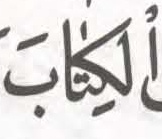 الْكِتَابَ